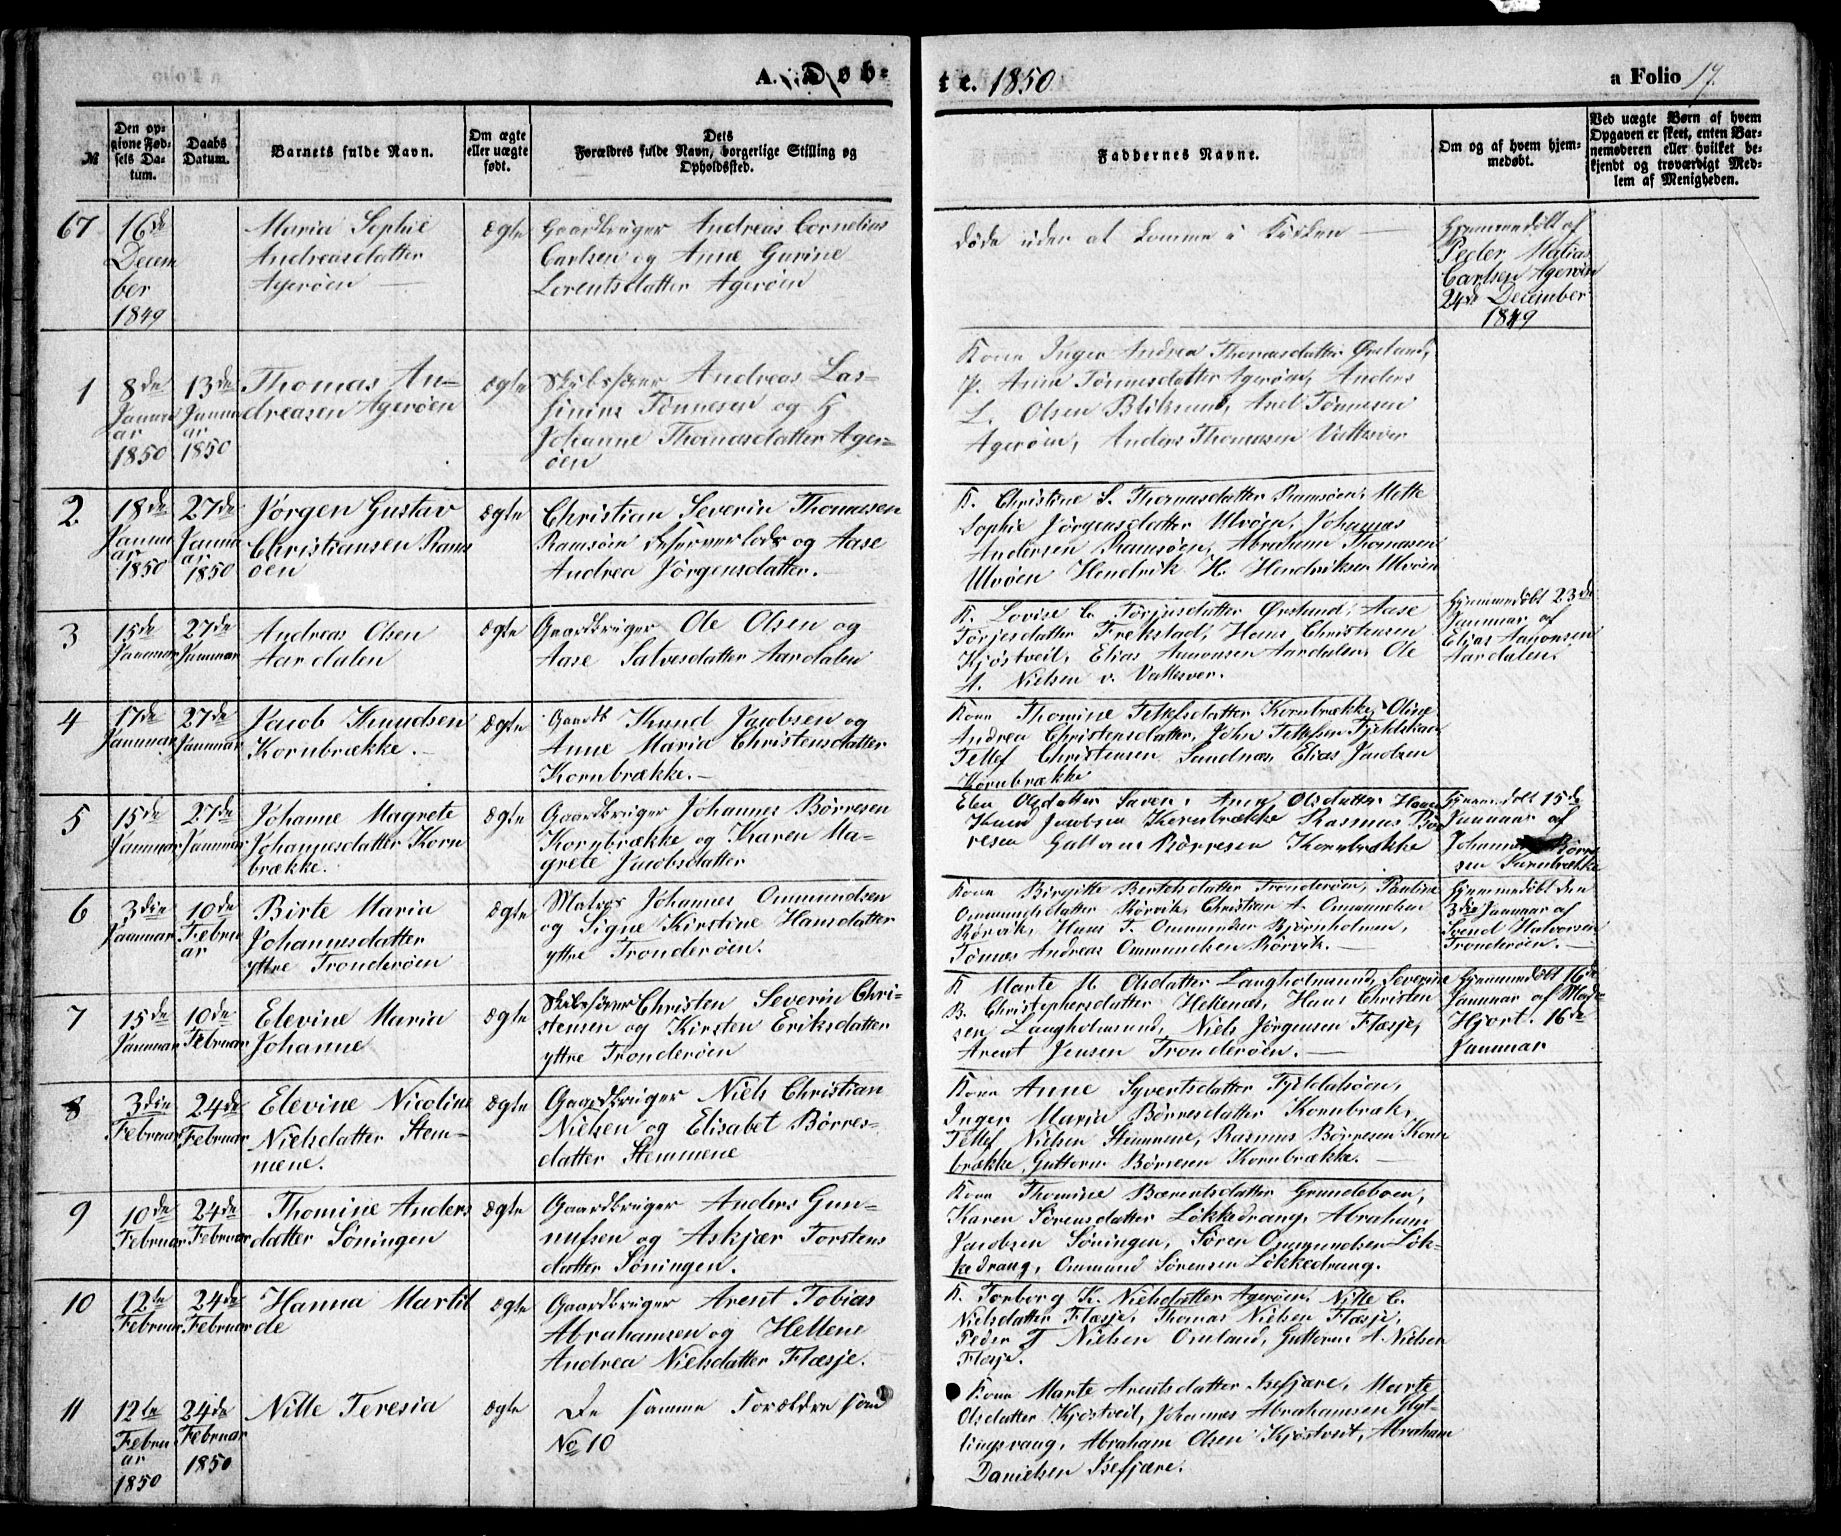 A. Døb-
te. 1850
a Folio 17.
№
Den op-
givne Fød-
sels Da-
tum.
Daabs
Datum.
Barnets fulde Navn.
Om ægte
eller uægte
født.
Dets
Forældres fulde Navn, borgerlige Stilling og
Opholdssted.
Faddernes Navne.
Om og af hvem hjem-
medøbt.
Ved uægte Børn af hvem
Opgaven er skeet, enten Bar-
nemoderen eller hvilket be-
kjendt og troværdigt Med-
lem af Menigheden.
67
16de
Decem
ber
1849
Maria Sophie
Andreasdatter
Agerøen
ægte
Gaardbruger Andreas Cornelius
Carlsen og Anne Gurine
Lorentsdatter Agerøen
døde uden at komme i Kirken
Hjemmedøbt af
Peder Matias
Carlsen Agerøen
24de December
1849
1
8de
Janu
ar
1850
13de
Janu
ar
1850
Thomas An-
dreasen Agerøen
ægte
Skibsfører Andreas
Tønnesen og H
Johanne Thomasdatter Ager-
øen
Kone Inger Andrea Thomasdatter
P. Anne Tønnesdatter Agerøen, Anders
L. Olsen Bliksund, Axel Tønnesen
Agerøen, Anders Thomasen Vallesver
2
18de
Janu
ar
1850
27de
Janu
ar
1850
Jørgen Gustav
Christiansen Rams
øen
ægte
Christian Severin Thomasen
Ramsøen og Aase
Andrea Jørgensdatter.
K. Christine S. Thomasdatter Ramsøen, Mette
Sophie Jørgensdatter Ulvøen, Johannes
Andersen Ramsøen, Abraham Thomasen
Ulvøen Hendrik H. Hendriksen Ulvøen
3
15de
Januar
27de
Januar
Andreas Olsen
Aardalen
ægte
Gaardbruger Ole Olsen og
Aase Salvesdatter Aardalen
K. Lovise C. Tørjusdatter Aase
Tørjesdatter Trøkstad, Hans Christensen
Kjøstveit, Elias Aanonsen Aardalen, Ole
A. Nielsen v. Vallesver.
Hjemmedøbt 23de
Januar af
Elias Aanonsen
Aardalen.
4
17de
Januar
27de
Januar
Jacob Knudsen
Kornbrække.
ægte
Gaardb Knud Jacobsen og
Anne Maria Christensdatter
Kornbrække.
Kone Thomine Tellefsdatter Kornbrække, Oline
Andrea Christensdatter, John Tellefsen
Tellef Christensen Sandnæs, Elias Jacobsen
Kornbrække
5
15de
Januar
27de
Januar
Johanne Magrete
Johannesdatter Korn
brække.
ægte
Gaardbruger Johannes Børresen
Kornbrække og Karen Ma-
grete Jacobsdatter
Elen Olsdatter Anne Olsdatter
Knud Jacobsen Kornbrække Rasmus Bør
resen Guttorm Børresen Kornbrække
Hjemmedøbt 15de
Januar af
Johannes Børre
sen Kornbrække
6
3die
Januar
10de
Febru
ar
Birte Maria
Johannesdatter
yttre Tronderøen
ægte
Matros Johannes Ommundsen
og Signe Kirstine Hansdatter
yttre Tronderøen.
Kone Birgitte Bertelsdatter Tronderøen, Pauline
Ommundsdatter Rørvik, Christian A. Ommundsen
Rørvik, Hans T. Ommundsen Bjørnholmen,
Tønnes Andreas Ommundsen Rørvik.
Hjemmedøbt den
3die Januar af
Svend Halvorsen
Tronderøen.
7
15de
Januar
10de
Februar
Elevine Maria
Johanne
ægte
Skibsfører Christen Severin Chri-
stensen og Kirsten Eriksdatter
yttre Tronderøen
K Marte M. Olsdatter Langholmsund, Severine
B. Christophersdatter Hekenæs, Hans Christen
sen Langholmsund, Niels Jørgensen Flæsje,
Arent Jensen Tronderøen.
Hjemmedøbt 16de
Januar af Mad-
Hjort. 16de
Januar
8
3die
Februar
24de
Februar
Elevine Nicoline
Nielsdatter Stem-
mene.
ægte
Gaardbruger Niels Christian
Nielsen og Elisabet Børres-
datter Stemmene
Kone Anne Syvertsdatter
Inger Maria Børresdatter Kornbræk,
Tellef Nielsen Stemmene, Rasmus Børresen Korn
brække, Guttorm Børresen Kornbrække.
9
10de
Februar
24de
Februar
Thomine Anders
datter Søningen
ægte
Gaardbruger Anders Gun-
nufsen og Askjær Torstens
datter Søningen.
Kone Thomine Bærentsdatter Grundeboen,
Karen Sørensdatter Løkkedrang, Abraham
Jacobsen Søningen, Søren Ommundsen Løk-
kedrang, Ommund Sørensen Løkkedrang.
10
12te
Februar
24de
Februar
Hanna Martil
de
ægte
Gaardbruger Arent Tobias
Abrahamsen og Hellene
Andrea Nielsdatter Flæsje.
K. Torborg K. Nielsdatter Agerøen, Nille C.
Nielsdatter Flæsje, Thomas Nielsen Flæsje,
Peder T Nielsen Guttorm A. Nielsen
Flæsje.
11
12te
Febru
ar
1850
24de
Februar
1850
Nille Teresia
ægte
De samme Forældre som
No 10
Kone Marte Arentsdatter Isefjære, Marte
Olsdatter Kjøstveit, Johannes Abrahamsen
Abraham Olsen Kjøstveit, Abraham
Danielsen Isefjære.